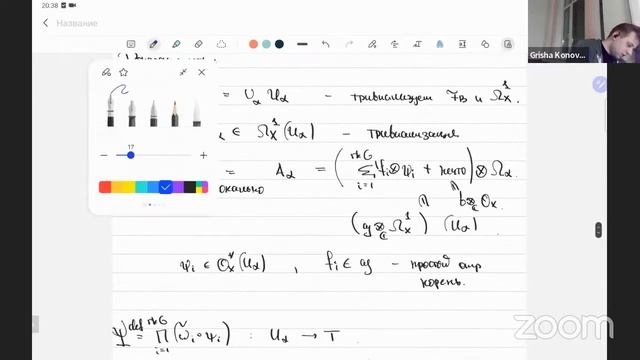 20:38
Название
Grisha Konov...
17
= ∪_α U_α – тривиализует F_B и Ω_X^1.
∈ Ω_X^1(U_α) – тривиализация
= A_α = (∑_{i=1}^{rk G} f_i ⊗ ψ_i + нечто) ⊗ Ω_α.
окально
b ⊗_ℂ O_X
(g ⊗_ℂ Ω_X^1)(U_α)
ψ_i ∈ O_X^×(U_α), f_i ∈ g – простой отр
корень.
Ψ def= ∏_{i=1}^{rk G} (ω̌_i ∘ ψ_i) : U_α → T
zoom